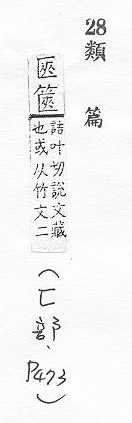 28 類篇
匧篋
詰叶切說文藏
也或从竹文二
（匚部、P473）